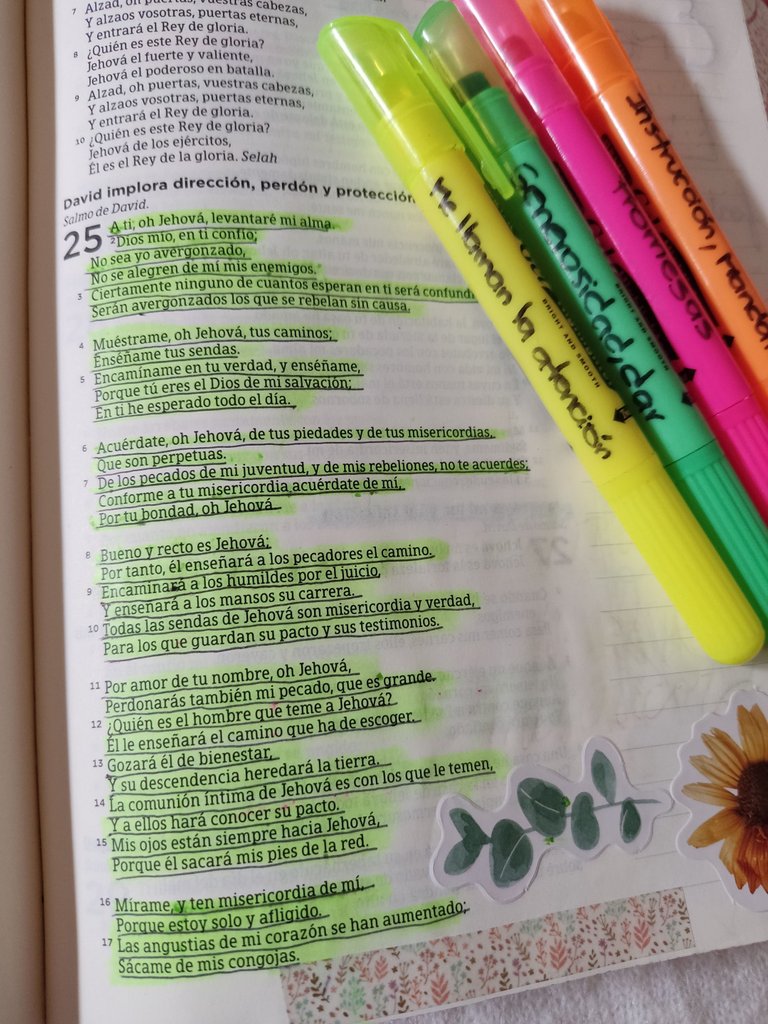 7 Alzad, oh puertas, vuestras cabezas,
Y alzaos vosotras, puertas eternas,
Y entrará el Rey de gloria.
8 ¿Quién es este Rey de gloria?
Jehová el fuerte y valiente,
Jehová el poderoso en batalla.
9 Alzad, oh puertas, vuestras cabezas,
Y alzaos vosotras, puertas eternas,
Y entrará el Rey de gloria.
10 ¿Quién es este Rey de gloria?
Jehová de los ejércitos,
Él es el Rey de la gloria. Selah
David implora dirección, perdón y protección
Salmo de David.
25 A ti, oh Jehová, levantaré mi alma.
2 Dios mío, en ti confío;
No sea yo avergonzado,
No se alegren de mí mis enemigos.
3 Ciertamente ninguno de cuantos esperan en ti será confundi
Serán avergonzados los que se rebelan sin causa.
4 Muéstrame, oh Jehová, tus caminos;
Enséñame tus sendas.
5 Encamíname en tu verdad, y enséñame,
Porque tú eres el Dios de mi salvación;
En ti he esperado todo el día.
6 Acuérdate, oh Jehová, de tus piedades y de tus misericordias,
Que son perpetuas.
7 De los pecados de mi juventud, y de mis rebeliones, no te acuerdes;
Conforme a tu misericordia acuérdate de mí,
Por tu bondad, oh Jehová.
8 Bueno y recto es Jehová;
Por tanto, él enseñará a los pecadores el camino.
9 Encaminará a los humildes por el juicio,
Y enseñará a los mansos su carrera.
10 Todas las sendas de Jehová son misericordia y verdad,
Para los que guardan su pacto y sus testimonios.
11 Por amor de tu nombre, oh Jehová,
Perdonarás también mi pecado, que es grande.
12 ¿Quién es el hombre que teme a Jehová?
Él le enseñará el camino que ha de escoger.
13 Gozará él de bienestar,
Y su descendencia heredará la tierra.
14 La comunión íntima de Jehová es con los que le temen,
Y a ellos hará conocer su pacto.
15 Mis ojos están siempre hacia Jehová,
Porque él sacará mis pies de la red.
16 Mírame, y ten misericordia de mí,
Porque estoy solo y afligido.
17 Las angustias de mi corazón se han aumentado;
Sácame de mis congojas.
Me llaman la atención
Generosidad, dar
BRIGHT AND SMOOTH
Promesas
BRIGHT AND SMOOTH
Instrucción,